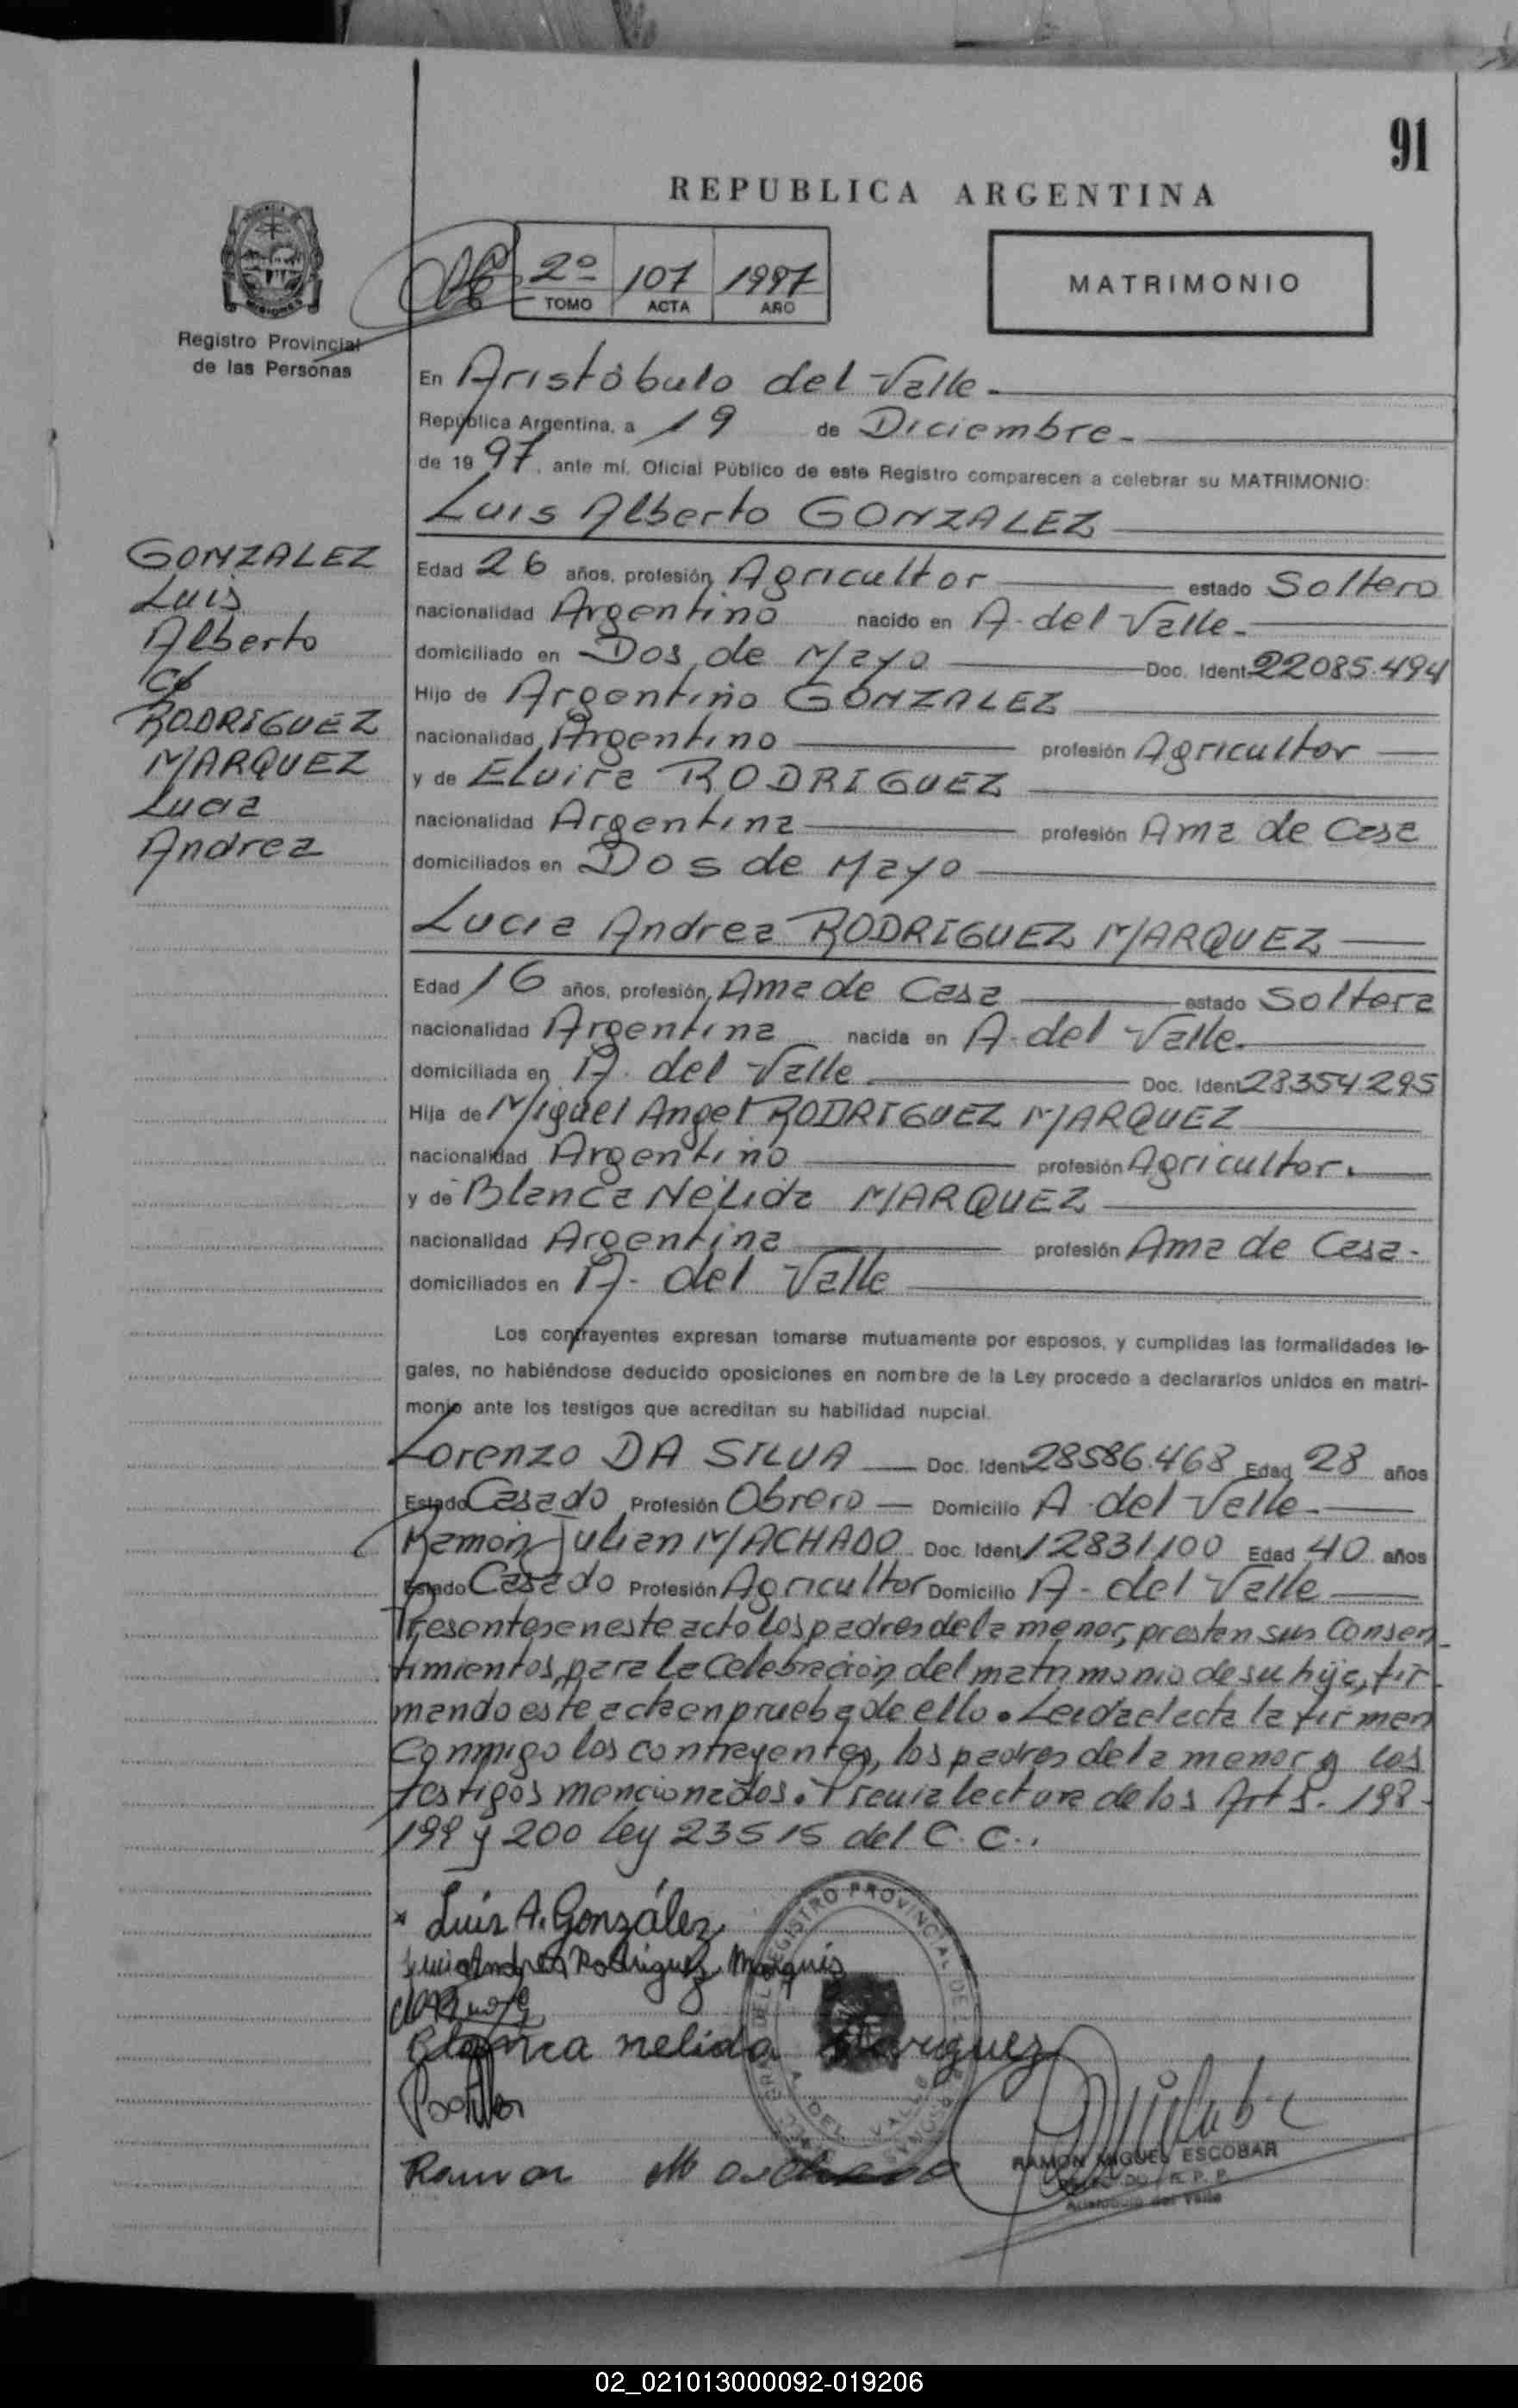 91
REPUBLICA ARGENTINA
2º 107 1997
TOMO ACTA AÑO
MATRIMONIO
Registro Provincial
de las Personas
En Aristóbulo del Valle.
República Argentina, a 19 de Diciembre.
de 1997, ante mí, Oficial Público de este Registro comparecen a celebrar su MATRIMONIO:
Luis Alberto GONZALEZ
GONZALEZ
Luis
Alberto
c/
RODRIGUEZ
MARQUEZ
Lucia
Andrea
Edad 26 años, profesión Agricultor estado Soltero
nacionalidad Argentino nacido en A. del Valle.
domiciliado en Dos de Mayo Doc. Ident. 22085.494
Hijo de Argentino GONZALEZ
nacionalidad Argentino profesión Agricultor
y de Elvira RODRIGUEZ
nacionalidad Argentina profesión Ama de Casa
domiciliados en Dos de Mayo
Lucia Andrea RODRIGUEZ MARQUEZ
Edad 16 años, profesión Ama de Casa estado Soltera
nacionalidad Argentina nacida en A. del Valle.
domiciliada en A. del Valle Doc. Ident. 28354.295
Hija de Miguel Angel RODRIGUEZ MARQUEZ
nacionalidad Argentino profesión Agricultor.
y de Blanca Nélida MARQUEZ
nacionalidad Argentina profesión Ama de Casa.
domiciliados en A. del Valle
Los contrayentes expresan tomarse mutuamente por esposos, y cumplidas las formalidades le-
gales, no habiéndose deducido oposiciones en nombre de la Ley procedo a declararlos unidos en matri-
monio ante los testigos que acreditan su habilidad nupcial.
Lorenzo DA SILVA Doc. Ident. 28586.468 Edad 28 años
Estado Casado Profesión Obrero Domicilio A. del Valle.
Ramón Julian MACHADO Doc. Ident. 12831100 Edad 40 años
Estado Casado Profesión Agricultor Domicilio A. del Valle
Presentes en este acto los padres de la menor, prestan sus Consen-
timientos, para la Celebración del matrimonio de su hija, fir-
mando este acta en prueba de ello. Leida el acta la firman
Conmigo los contrayentes, los padres de la menor y los
testigos mencionados. Previa lectura de los Arts. 198-
199 y 200 Ley 23515 del C.C..
Luis A. González
Rodriguez Marquis
Blanca nelida Marquez
Ramon Machado
REGISTRO PROVINCIAL DE
A. DEL VALLE
RAMON MIGUEL ESCOBAR
R. P. P.
Aristobulo del Valle
02_021013000092-019206